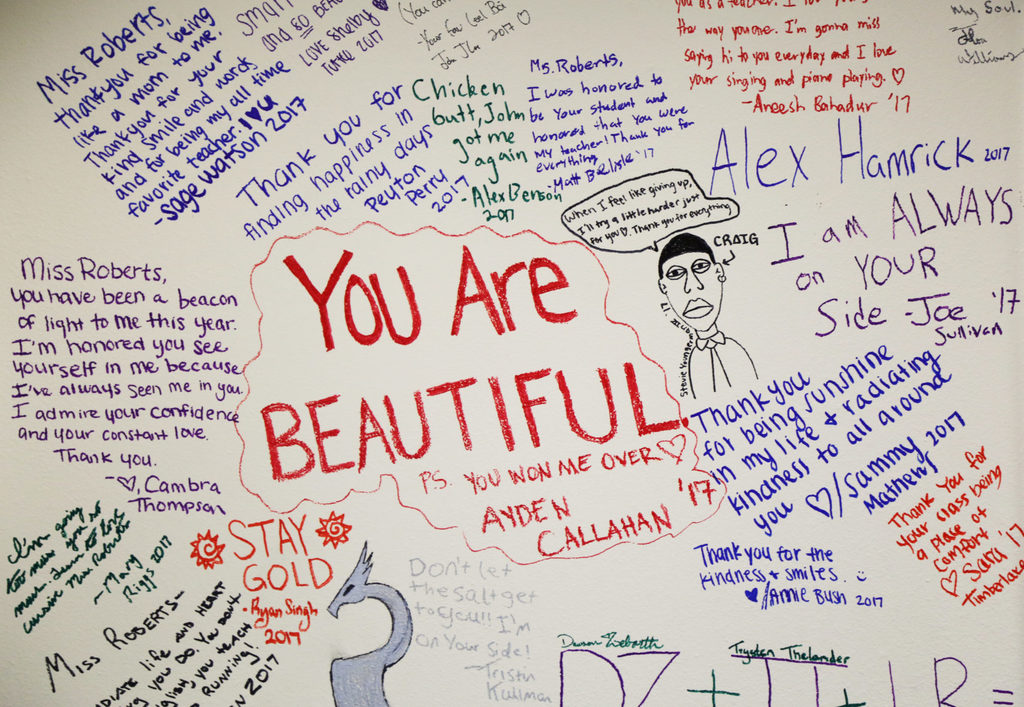 Miss Roberts,
Thank you for being
like a mom to me.
Thank you for your
kind smile and words
and for being my all time
favorite teacher. I ♥ U
-sage watson 2017
small
and so
LOVE Shelby ♥
2017
(You can
2017 ♡
Thank you for
finding happiness in
the rainy days
Peyton
Perry
2017
Chicken
butt, John
got me
again
-Alex Benson
2017
Ms. Roberts,
I was honored to
be your student and
honored that you were
my teacher! Thank you for
everything
-Matt Belisle '17
the way you are. I'm gonna miss
saying hi to you everyday and I love
your singing and piano playing. ♡
-Aneesh Bahadur '17
My Soul.
Williams
Alex Hamrick 2017
When I feel like giving up,
I'll try a little harder just
for you ♡. Thank you for everything
CRAIG
I am ALWAYS
on YOUR
Side -Joe '17
Sullivan
Miss Roberts,
you have been a beacon
of light to me this year.
I'm honored you see
yourself in me because
I've always seen me in you.
I admire your confidence
and your constant love.
Thank you.
-♡, Cambra
Thompson
YOU ARE
BEAUTIFUL.
PS. YOU WON ME OVER ♡
AYDEN '17
CALLAHAN
Thank you
for being sunshine
in my life + radiating
kindness to all around
you ♡/Sammy 2017
Mathews
Thank you for
your class being
a place of
comfort
♡ Sara '17
Timberlake
Thank you for the
kindness + smiles. :)
♥/Annie Bush 2017
I'm going
too miss you so
-Mary
Riggs 2017
STAY
GOLD
-Ryan Singh
2017
Don't let
the salt get
to you!! I'm
on your side!
-Tristn
Kullman
MISS ROBERTS-
life AND HEART
YOU DO. YOU DON'T
you teach
RUNNING!
2017
Trystan Thelander
+
+
R =